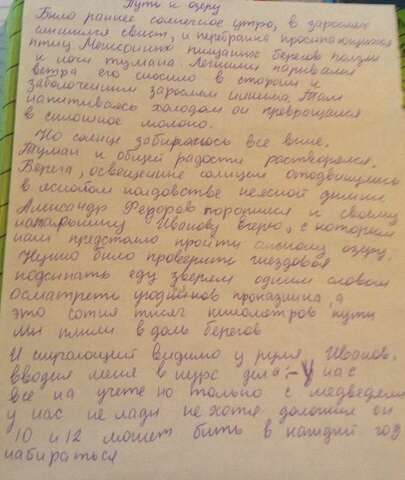 Путь к озеру
Было раннее солнечное утро, в зарослях
слышился свист, и перебранк просыпающихся
птиц
песчаных берегов ползли
к нам тумана. Легкими порывами
ветра его сносило в сторону к
заболоченным зарослям
Там
напитываясь холодом он превращался
в сплошное молоко.
Но солнце забиралось все выше.
Туман к общей радости растворялся.
Берега, освещенные солнцем отодвинулись
в колдовстве неясной дымки
Александр Федоров торопился к своему
напарнику Иванову егерю, с которым
нам предстояло пройти по озеру.
Нужно было проверить гнездовья
подсыпать еду зверям одним словом
осмотреть
а
это сотня тысяч километров пути
мы плыли вдоль берегов
И
видимо у руля, Иванов,
вводил меня в курс дела: - У нас
все на учете но только с медведями
у нас не лады не хотя доложил он
10 и 12 может быть в каждый год
набираться